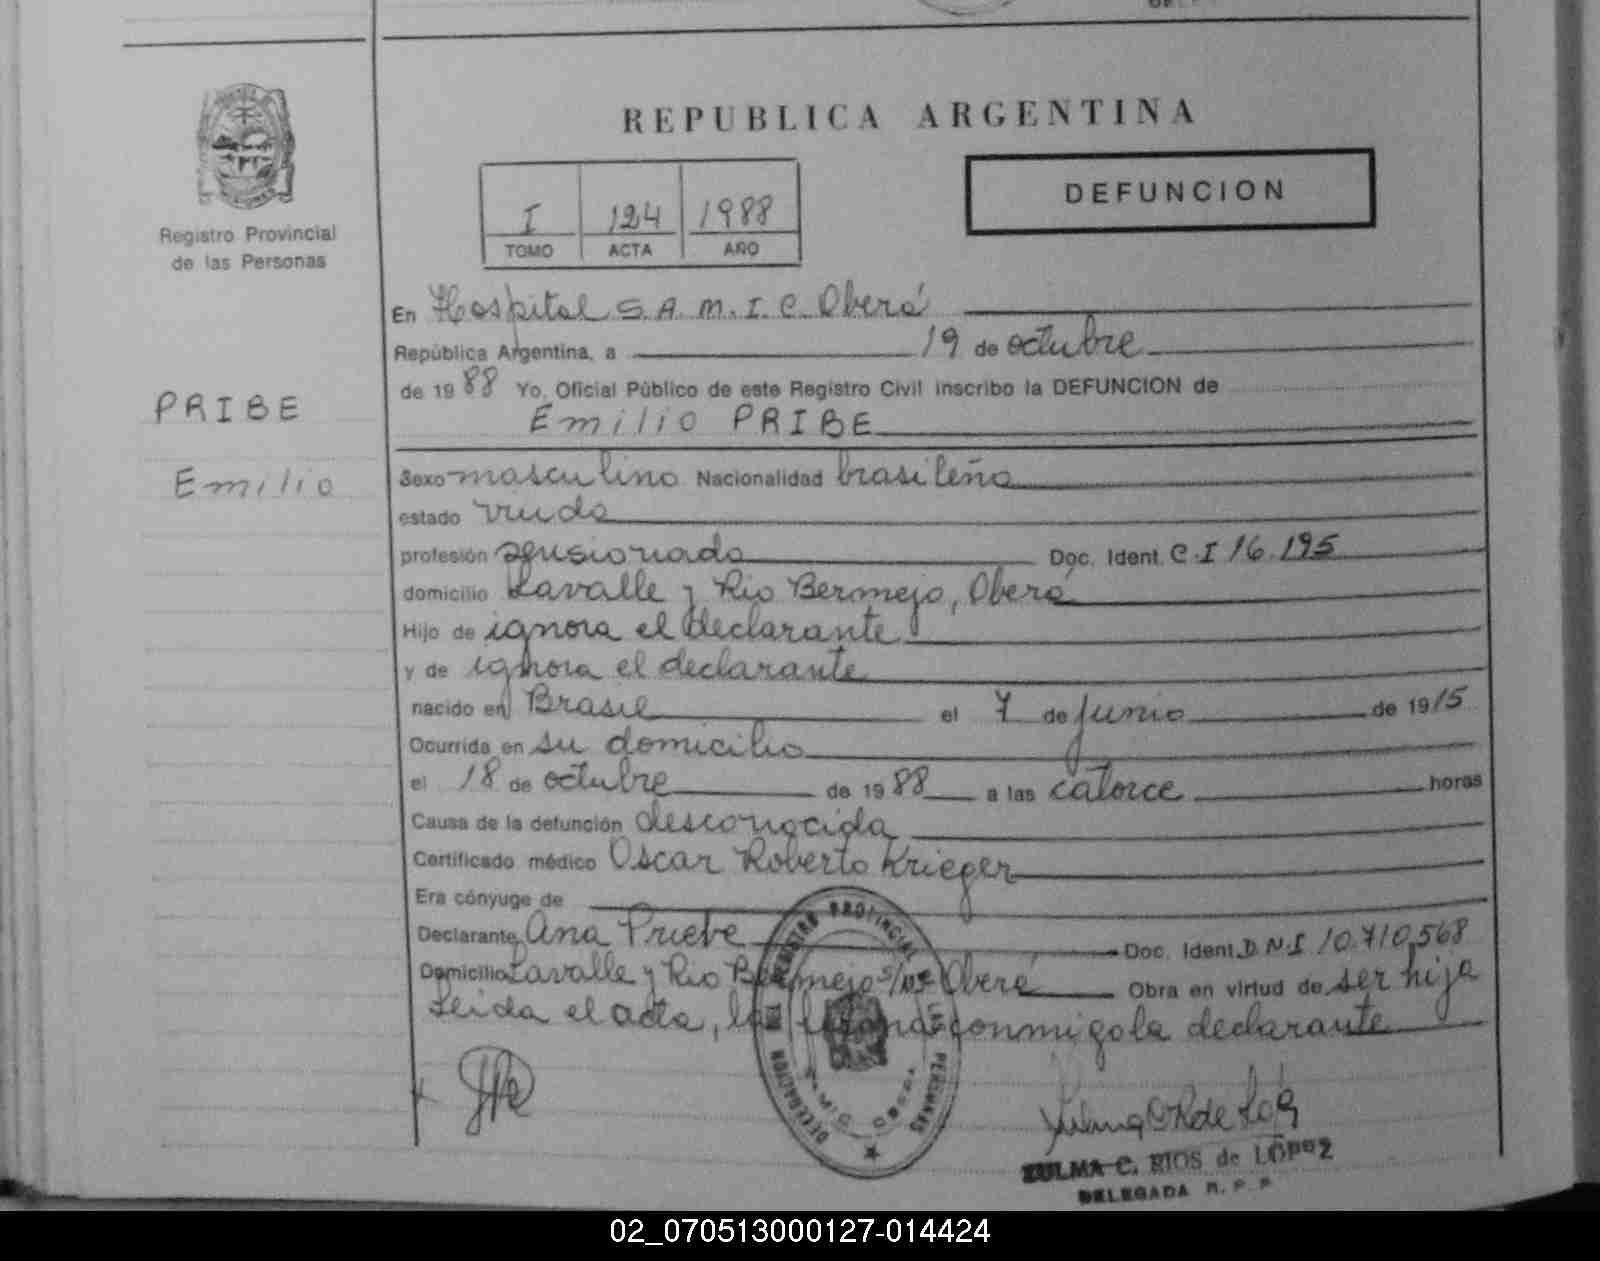 REPUBLICA ARGENTINA
DEFUNCION
I 124 1988
TOMO ACTA AÑO
Registro Provincial
de las Personas
PRIBE
Emilio
En Hospital S.A.M.I.C. Oberá
República Argentina, a 19 de octubre
de 1988 Yo, Oficial Público de este Registro Civil inscribo la DEFUNCION de
Emilio PRIBE
Sexo masculino Nacionalidad brasileña
estado viudo
profesión pensionado Doc. Ident. C.I 16.195
domicilio Lavalle y Rio Bermejo, Oberá
Hijo de ignora el declarante
y de ignora el declarante
nacido en Brasil el 7 de junio de 1915
Ocurrida en su domicilio
el 18 de octubre de 1988 a las catorce horas
Causa de la defunción desconocida
Certificado médico Oscar Roberto Krieger
Era cónyuge de
Declarante Ana Priebe Doc. Ident. D.N.I 10.710.568
Domicilio Lavalle y Rio Bermejo s/nº Oberá Obra en virtud de ser hija
Leida el acta, la firma conmigo la declarante
REGISTRO PROVINCIAL DE LAS PERSONAS
DELEGACION
ZULMA C. RIOS de LÓPEZ
DELEGADA R. P. P.
02_070513000127-014424